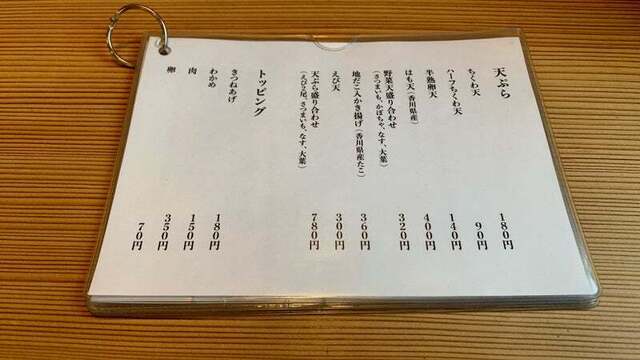 天ぷら
ちくわ天 180円
ハーフちくわ天 90円
半熟卵天 140円
はも天(香川県産) 400円
野菜天盛り合わせ 320円
(さつまいも、かぼちゃ、なす、大葉)
地だこ入かき揚げ(香川県産たこ) 360円
えび天 300円
天ぷら盛り合わせ 780円
(えび2尾、さつまいも、なす、大葉)
トッピング
きつねあげ 180円
わかめ 150円
肉 350円
卵 70円